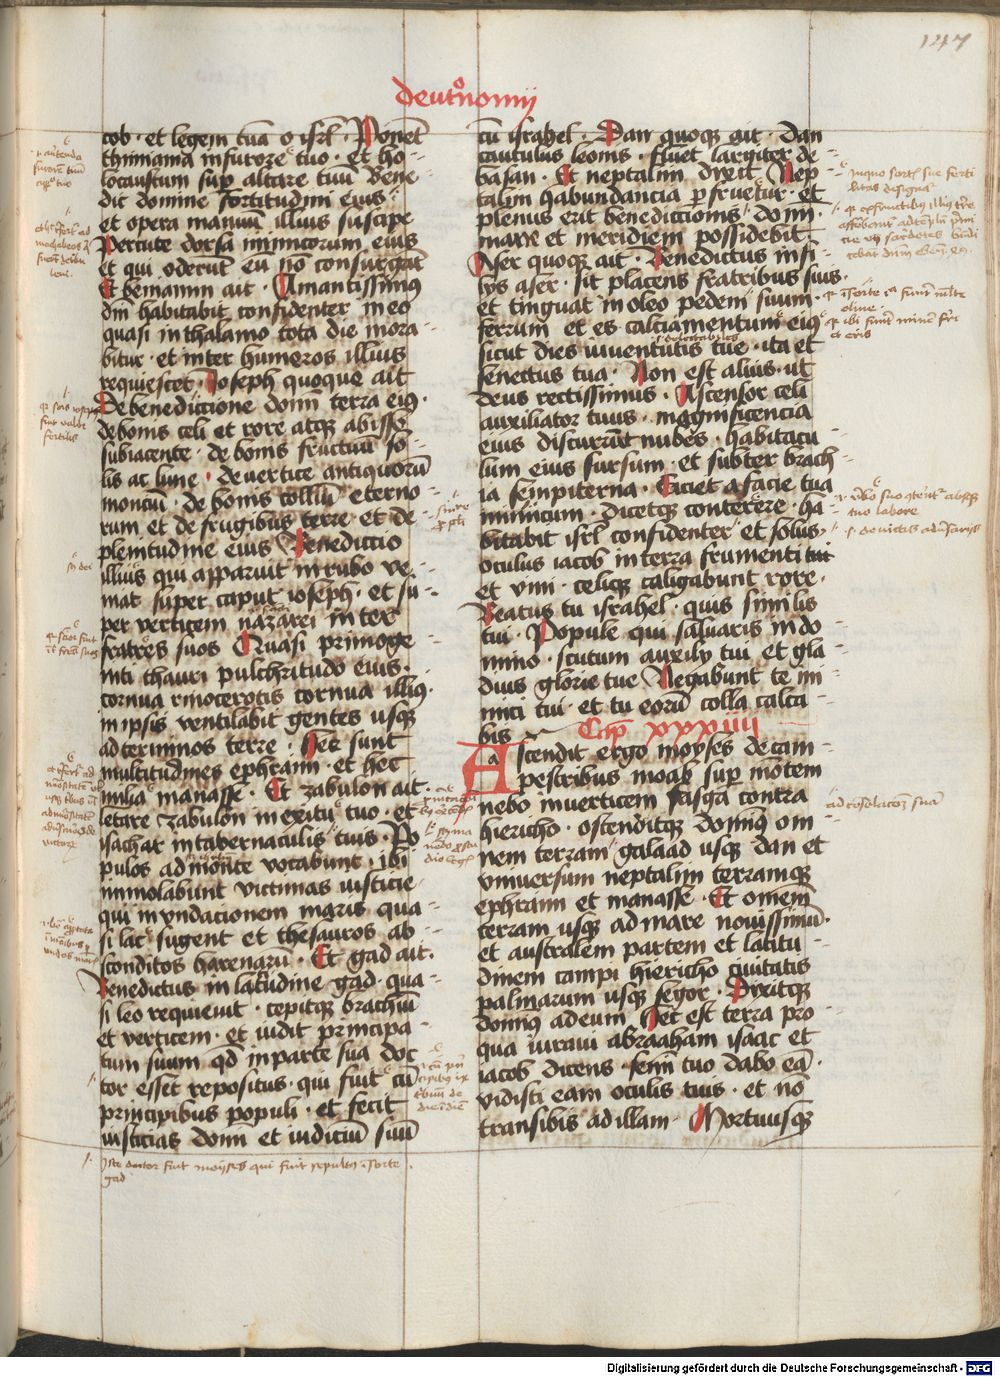 147
deut'nomij
cob · et legem tuā o isrl̄ · Ponet
thimiama in furore tuo · et ho
locaustum sup altare tuū Bene
dic domine fortitudini eius
et opera manuum illius suscipe
Percute dorsa inimicorum eius
et qui oderūt eū nō consurgāt
Et beniamin ait · Amantissimus
dn̄i habitabit confidenter in eo
quasi in thalamo tota die mora
bitur · et inter humeros illius
requiescet · Joseph quoque ait
De benedictione domī terra eius ·
de bonis celi et rore atqꝫ abysso
subiacente · de bonis fructuū so
lis ac lune · de vertice antiquorū
montiū · de bonis colliū eterno
rum et de frugibus terre et de
plenitudine eius Benedictio
illius qui apparuit in rubo ve
niat super caput ioseph · et su
per verticem nazarei inter
fratres suos Quasi primoge
niti thauri pulchritudo eius ·
cornua rinocerotis cornua illiꝰ ·
in ipsis ventilabit gentes usqꝫ
ad terminos terre · Hec sunt
multitudines ephraim · et hec
milia manasse · Et zabulon ait ·
letare zabulon in exitu tuo · et
isachar in tabernaculis tuis · Po
pulos ad monte vocabunt · ibi
immolabunt victimas iusticie
qui inundacionem maris qua
si lac sugent et thesauros ab
sconditos harenarū · Et gad ait ·
Benedictus in latitudine gad · qua
si leo requieuit · cepitqꝫ brachiū
et verticem · et uidit principa
tum suum qd in parte sua doc
tor esset repositus · qui fuit cū
principibus populi · et fecit
iusticias domī et iudiciū suū
cū israhel · Dan quoqꝫ ait · Dan
catulus leonis · fluet largiter de
basan · Et neptalim dixit Nep
talim habundancia p fruetur · et
plenus erit benediccionis domī ·
mare et meridiem possidebit
Aser quoqꝫ ait · Benedictus in fi
lijs aser · sit placens fratribus suis ·
et tinguat in oleo pedem suum ·
ferrum et es calciamentum eiꝰ
sicut dies iuuentutis tue · ita et
senectus tua · Non est alius · ut
deus rectissimus · Ascensor celi
auxiliator tuus · magnificencia
eius discurrūt nubes · habitacu
lum eius sursum · et subter brach
ia sempiterna · Eiciet a facie tua
inimicum · dicetqꝫ conterere · ha
bitabit isrl̄ confidenter et solus ·
oculus iacob in terra frumenti
et vini · celiqꝫ caligabunt rore ·
Beatus tu israhel · quis similis
tui · Popule qui saluaris in do
mino · scutum auxilij tui et gla
dius glorie tue Negabunt te ini
mici tui · et tu eorū colla calca
bis
Cap̄ xxxiiii
Ascendit ergo moyses de cam
pestribus moab sup mōtem
nebo in verticem fasga contra
hiericho · ostenditqꝫ dominꝰ om
nem terram galaad usqꝫ dan et
vniuersum neptalim terramqꝫ
ephraim et manasse · Et omnem
terram usqꝫ ad mare nouissimū ·
et australem partem et latitu
dinem campi hiericho ciuitatis
palmarum usqꝫ segor · Dixitqꝫ
dominꝰ ad eum Hec est terra pro
qua iuraui abraaham isaac et
iacob dicens · semini tuo dabo eā ·
vidisti eam oculis tuis · et nō
transibis ad illam · Mortuusqꝫ
Iste doctor fuit moyses qui fuit sepultꝰ
gad
Digitalisierung gefördert durch die Deutsche Forschungsgemeinschaft - DFG